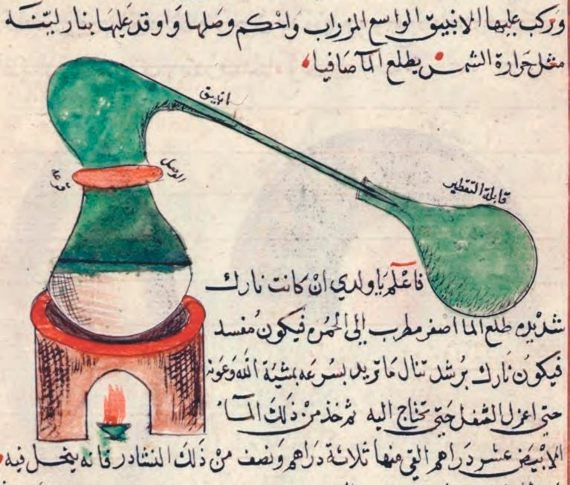 وركب عليها الانبيق الواسع المزراب واحكم وصلها واوقد عليها بنار ليّنه
مثل حرارة الشمس يطلع الما صافيا
انبيق
الوصل
قابلة التقطير
فاعلم يا ولدي ان كانت نارك
شديده طلع الما اصفر مطرب الى الحمره فيكون مفسد
فيكون نارك برشد تنال ما تريد بسرعه بمشية الله وعونه
حتى اعزل الثفل حتى تحتاج اليه ثم خذ من ذلك الما
الابيض عشر دراهم القي منها ثلاثة دراهم ونصف من ذلك النشادر فانه ينحل فيه